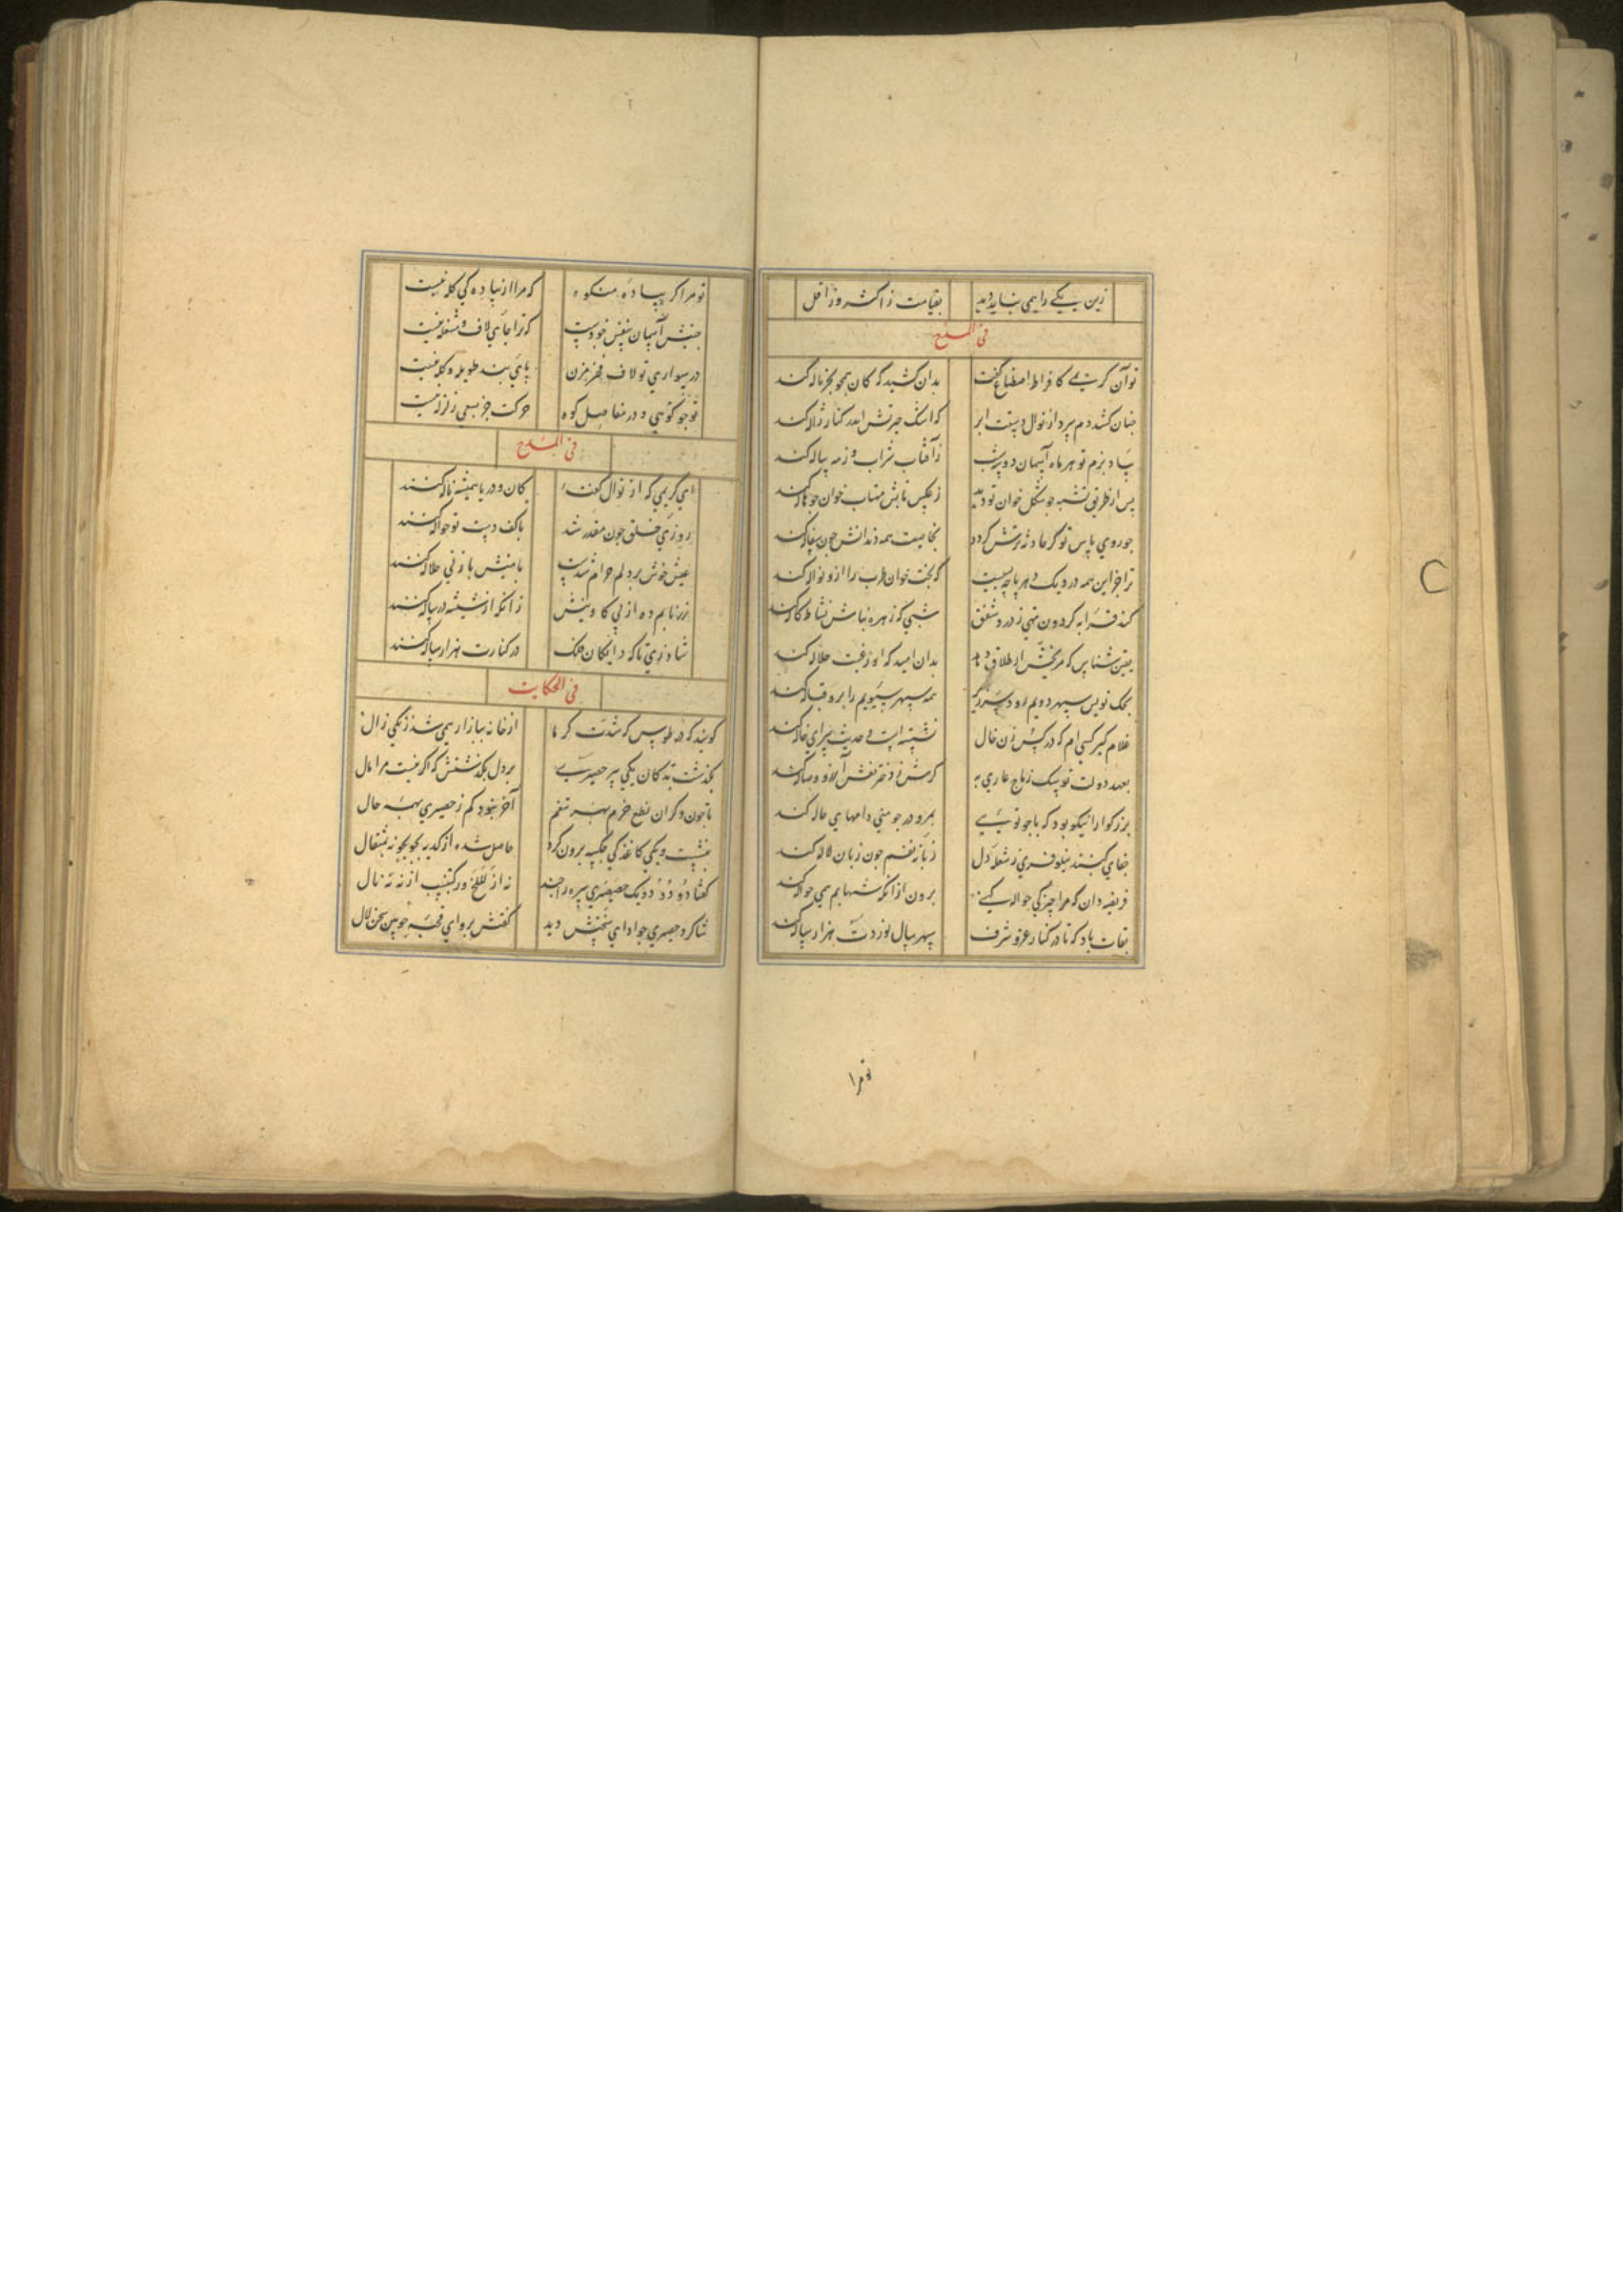 زین یکی را همی نباید دید بقیامت ز اکثر و ز اقل
فی المدح
تو آن کریمی کافراط اصطناع کفت بدان کشید که کان همچو بحر ناله کند
چنان کشد دم سرد از نوال دستت ابر که اشک حیرتش اندر کنار ژاله کند
بیاد بزم تو هر ماه آسمان دو سه شب ز آفتاب شراب و ز مه پیاله کند
پس از طریق تشبه چو شکل خوان تو دید ز عکس تابش مهتاب خوان چو هاله کند
چو روی پاس تو گر حادثه ترش گردد بخاصیت همه دندانش چون سفاله کند
ترا جز این همه در دیک دهر پاچه بسیست که بخت خوان طرب را ازو نواله کند
کند قرابه گردون تهی ز درد شفق شبی که زهره بنامش نشاط کاله کند
یقین شناس که مریخش ار طلاق دهد بدان امید که او رغبت حلاله کند
بچک نویس سپهر دویم رود بر تیر همه سپهر سیویم را برو قباله کند
غلام گیر کسی ام که در پس زن خال نشسته است و حدیث سرای خاله کند
بعهد دولت تو نیک زناج عاری به گرش ز دختر نعش آرزو وصاله کند
بزرگوارا نیکو بود که با چو تویی بمزو در چو منی دامهای عاله کند
جفای گنبد نیلوفری ز شعله دل زبانه نفسم چون زبان لاله کند
فریضه دان که مرا چیزکی حواله کنی برون از آنکه شهابم همی حواله کند
بقات باد که تا در کنار عز و شرف سپهر سال نوردت هزار ساله کند
تو مرا
تو مرا گر پیاده منکوه که مرا از پیاده کی گله نیست
جنبش آسمان بنفس خودست که ترا جای لاف و مشغله نیست
در سواری تو لاف فخر مزن پای بند طویله و گله نیست
تو چو کوهی و در مفاصل کوه حرکت جز بسعی زلزله نیست
فی المدح
ای کریمی که از نوال کفت کان و دریا همیشه ناله کنند
روزی خلق چون مقدر شد با کف دست تو حواله کنند
عیش خوش بر دلم حرام شدست بامنیش باز نی حلاله کنند
زر نابم ده از پی کاوینش زانکه از شیشه در پیاله کنند
شاد زی تا که دایگان فلک در کنارت هزار ساله کنند
فی الحکایت
گویند که در طوس گه شدت گرما از خانه ببازار همی شد زنکی زال
بگذشت بدکان یکی پیر حصیری بر دل بگذشتش که اگر نیست مرا مال
تا چون دگران نطع خرم بهر تنعم آخر نبود کم ز حصیری بهمه حال
بنشست و یکی کاغذکی چکسه برون کرد حاصل شده از کدیه بجوجو نه بمثقال
گفتا دو دو دو دو یک حصیری سره را چند نه از للخ و ز کنب از نه نه نال
شاگرد حصیری چو ادای سخنش دید گفتش برو ای قحبه چونین بسخن لال